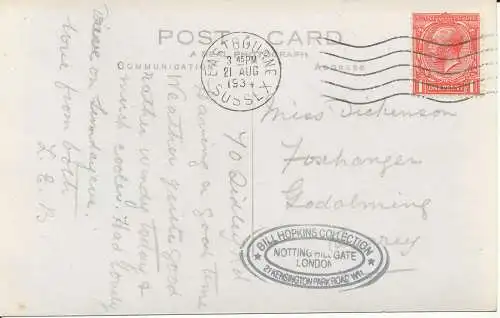 POST CARD
A REAL PHOTOGRAPH
COMMUNICATION
ADDRESS
EASTBOURNE
3 45PM
21 AUG
193
SUSSEX
ONE PENNY
Miss Dickenson
Foxhanger
Godalming
Surrey
BILL HOPKINS COLLECTION
NOTTING HILL GATE
LONDON
21 KENSINGTON PARK ROAD W11
Having a good time
Weather quite good
rather windy today &
much cooler. Had lovely
Drive on Sunday eve.
Love from both
L. E. B